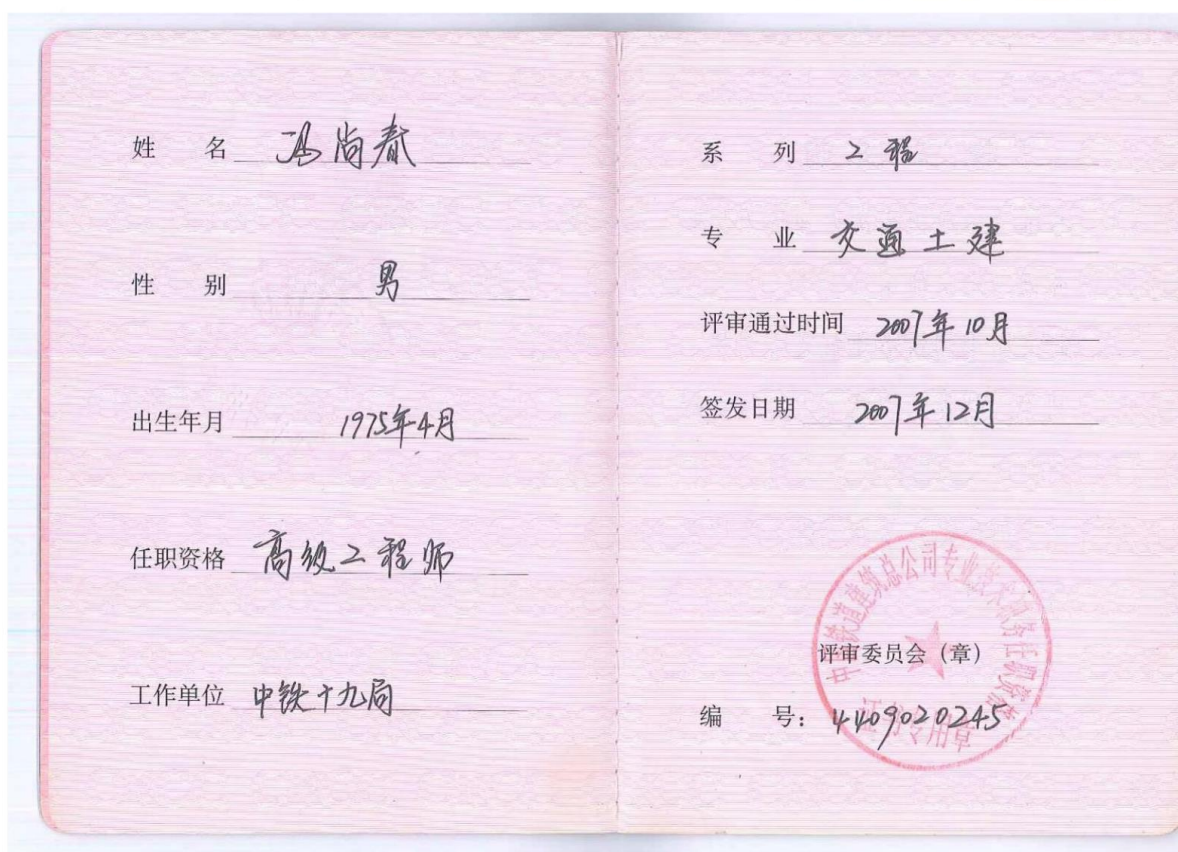 姓 名 冯尚春
性 别 男
出生年月 1975年4月
任职资格 高级工程师
工作单位 中铁十九局
系 列 工程
专 业 交通土建
评审通过时间 2007年10月
签发日期 2007年12月
中国铁道建筑总公司专业技术职务任职资格
评审委员会（章）
证书专用章
编 号：4409020245